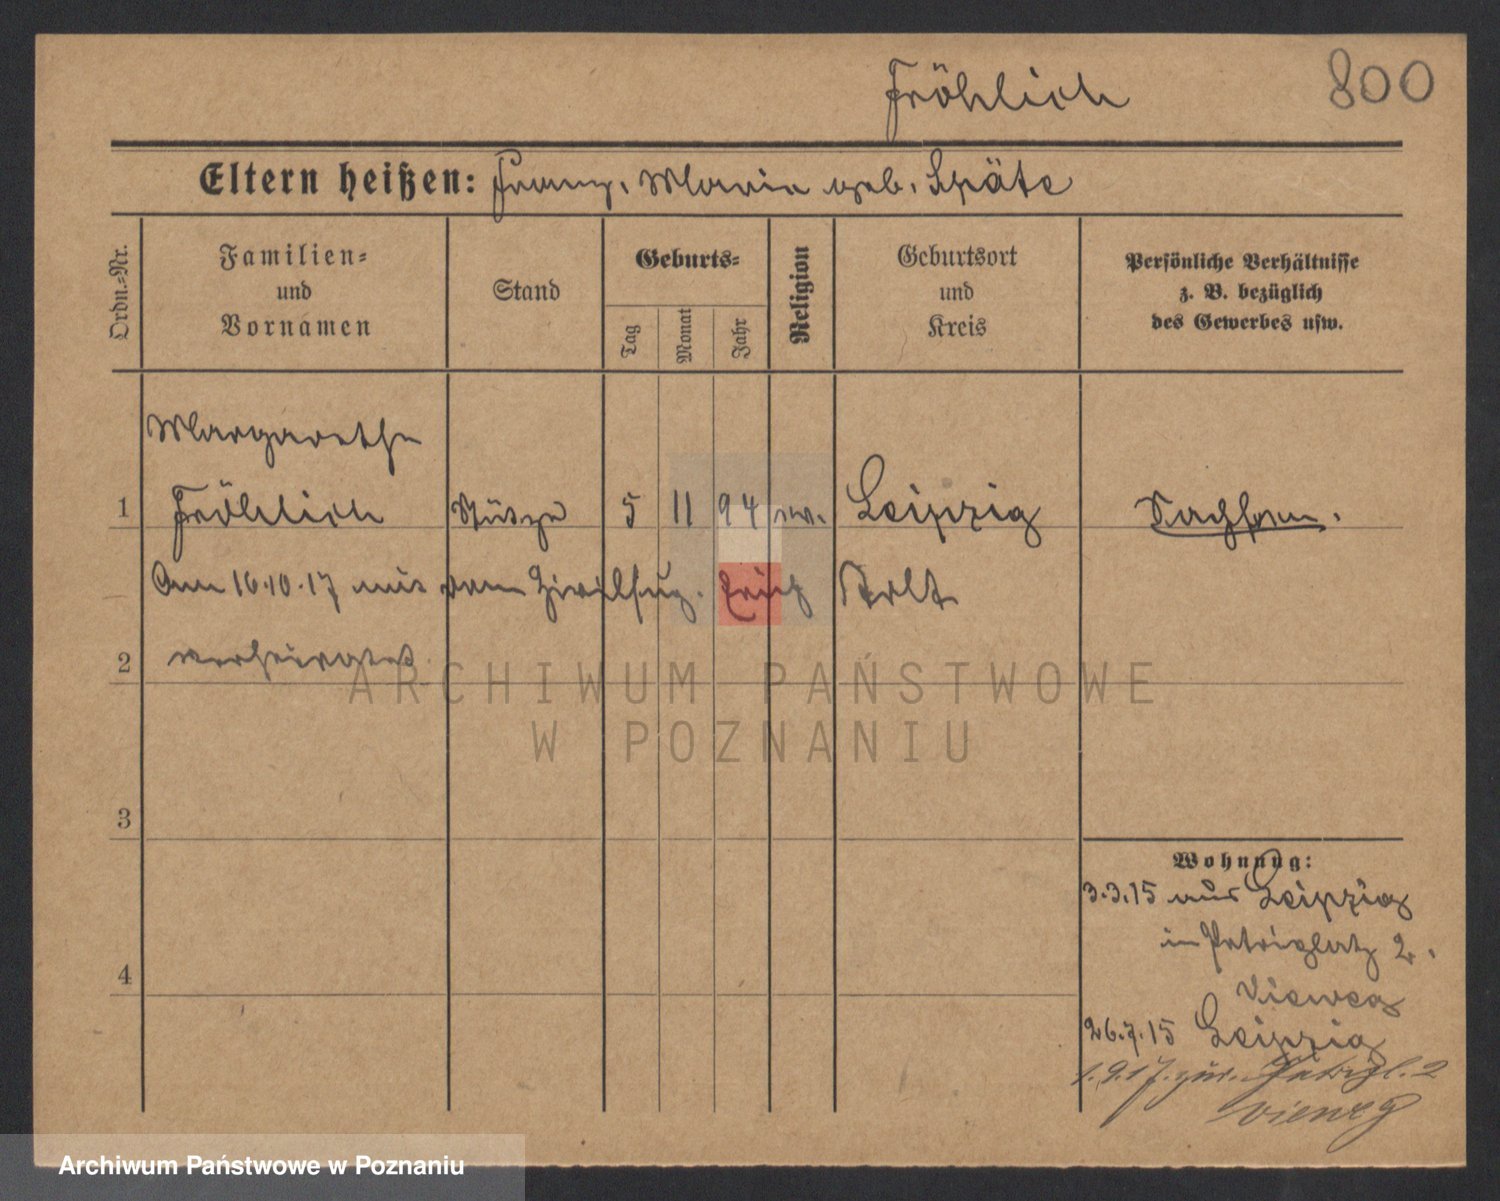 Fröhlich
800
Eltern heißen: Franz, Maria geb. Späte
Ordn.-Nr.
Familien-
und
Vornamen
Stand
Geburts-
Tag
Monat
Jahr
Religion
Geburtsort
und
Kreis
Persönliche Verhältnisse
z. B. bezüglich
des Gewerbes usw.
Margarethe
1 Fröhlich Stütze 5 11 94 ev. Leipzig Sachsen.
Am 16.10.17 mit dem Erich
2 verheiratet
ARCHIWUM PAŃSTWOWE
W POZNANIU
3
Wohnung:
3.3.15 aus Leipzig
in Petriplatz 2.
4
Vieweg
26.7.15 Leipzig
1.9.17. zur. Petripl. 2
Vieweg
Archiwum Państwowe w Poznaniu